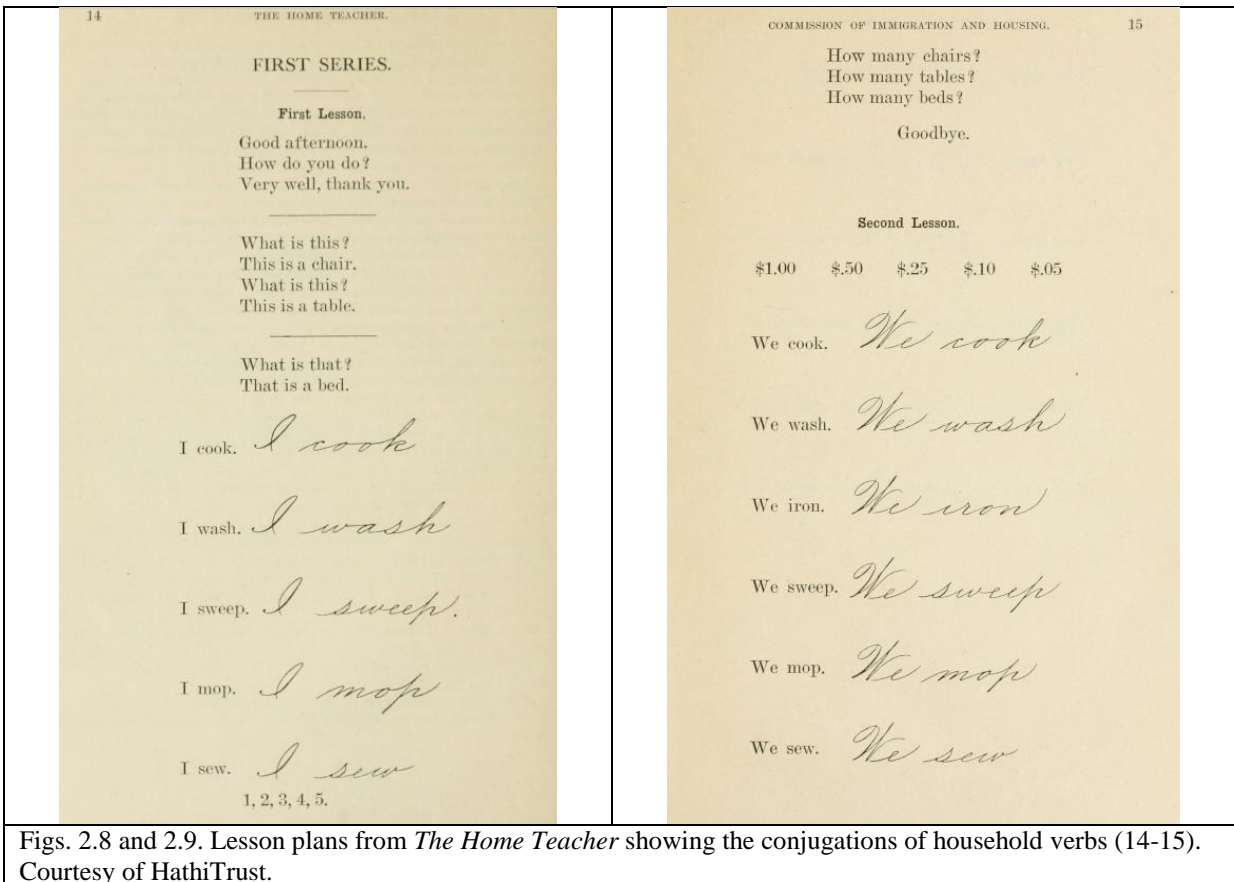 14 THE HOME TEACHER.
FIRST SERIES.
First Lesson.
Good afternoon.
How do you do?
Very well, thank you.
What is this?
This is a chair.
What is this?
This is a table.
What is that?
That is a bed.
I cook. I cook
I wash. I wash
I sweep. I sweep.
I mop. I mop
I sew. I sew
1, 2, 3, 4, 5.
COMMISSION OF IMMIGRATION AND HOUSING. 15
How many chairs?
How many tables?
How many beds?
Goodbye.
Second Lesson.
$1.00 $.50 $.25 $.10 $.05
We cook. We cook
We wash. We wash
We iron. We iron
We sweep. We sweep
We mop. We mop
We sew. We sew
Figs. 2.8 and 2.9. Lesson plans from The Home Teacher showing the conjugations of household verbs (14-15).
Courtesy of HathiTrust.